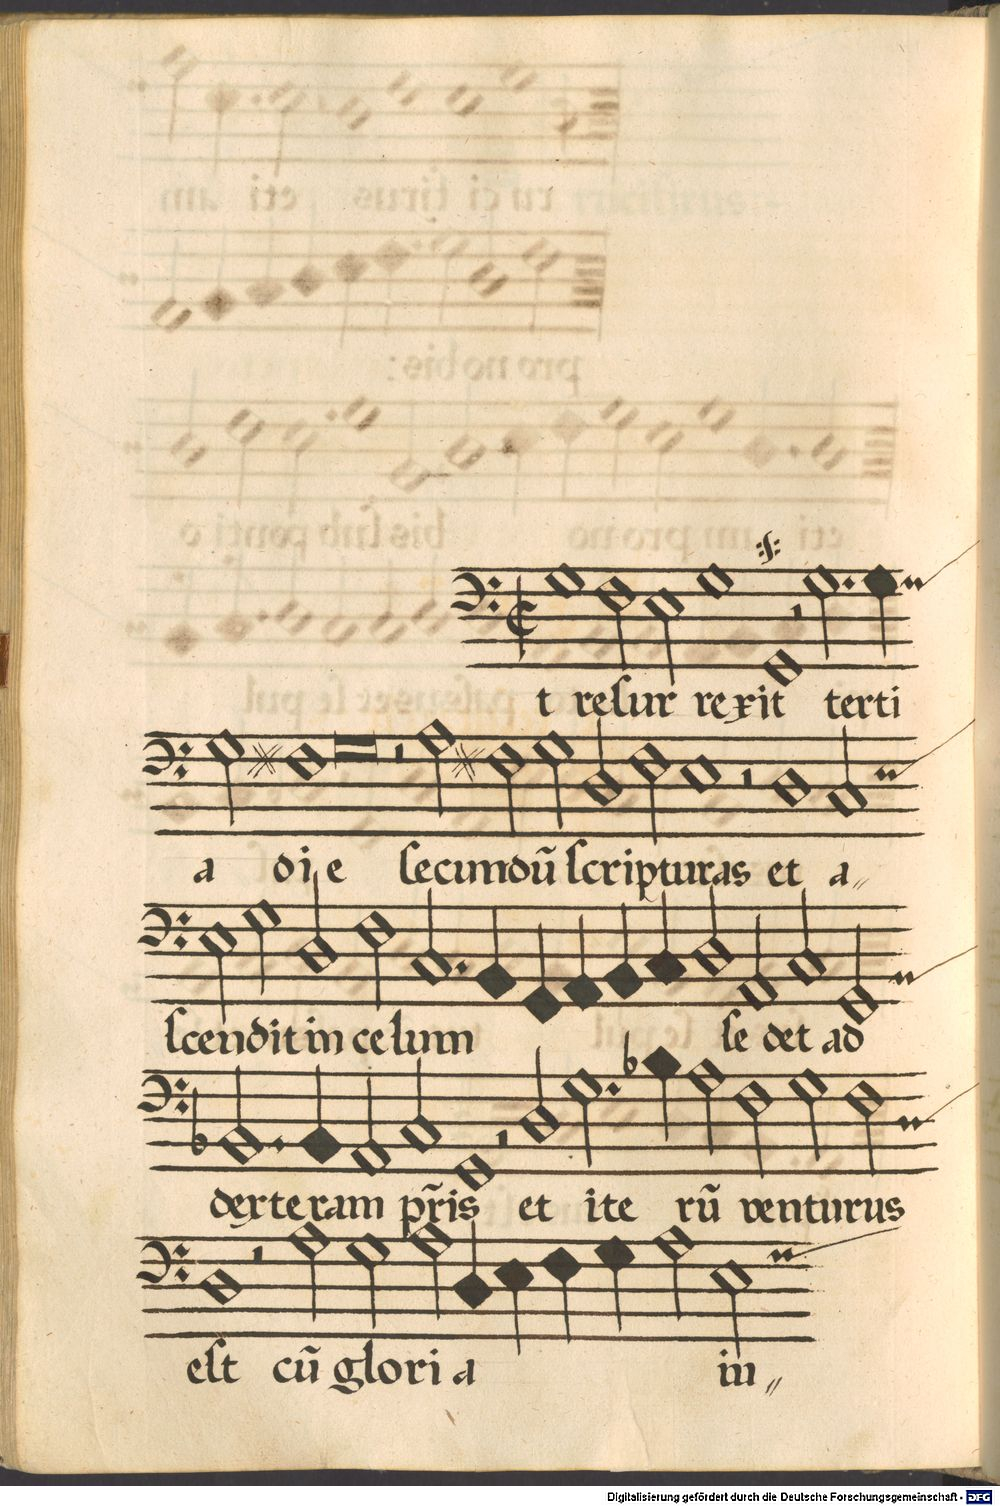 t resur rexit terti
a die secundū scripturas et a„
scendit in celum se det ad
dexteram pr̃is et ite rū venturus
est cū glori a iu„
Digitalisierung gefördert durch die Deutsche Forschungsgemeinschaft - DFG